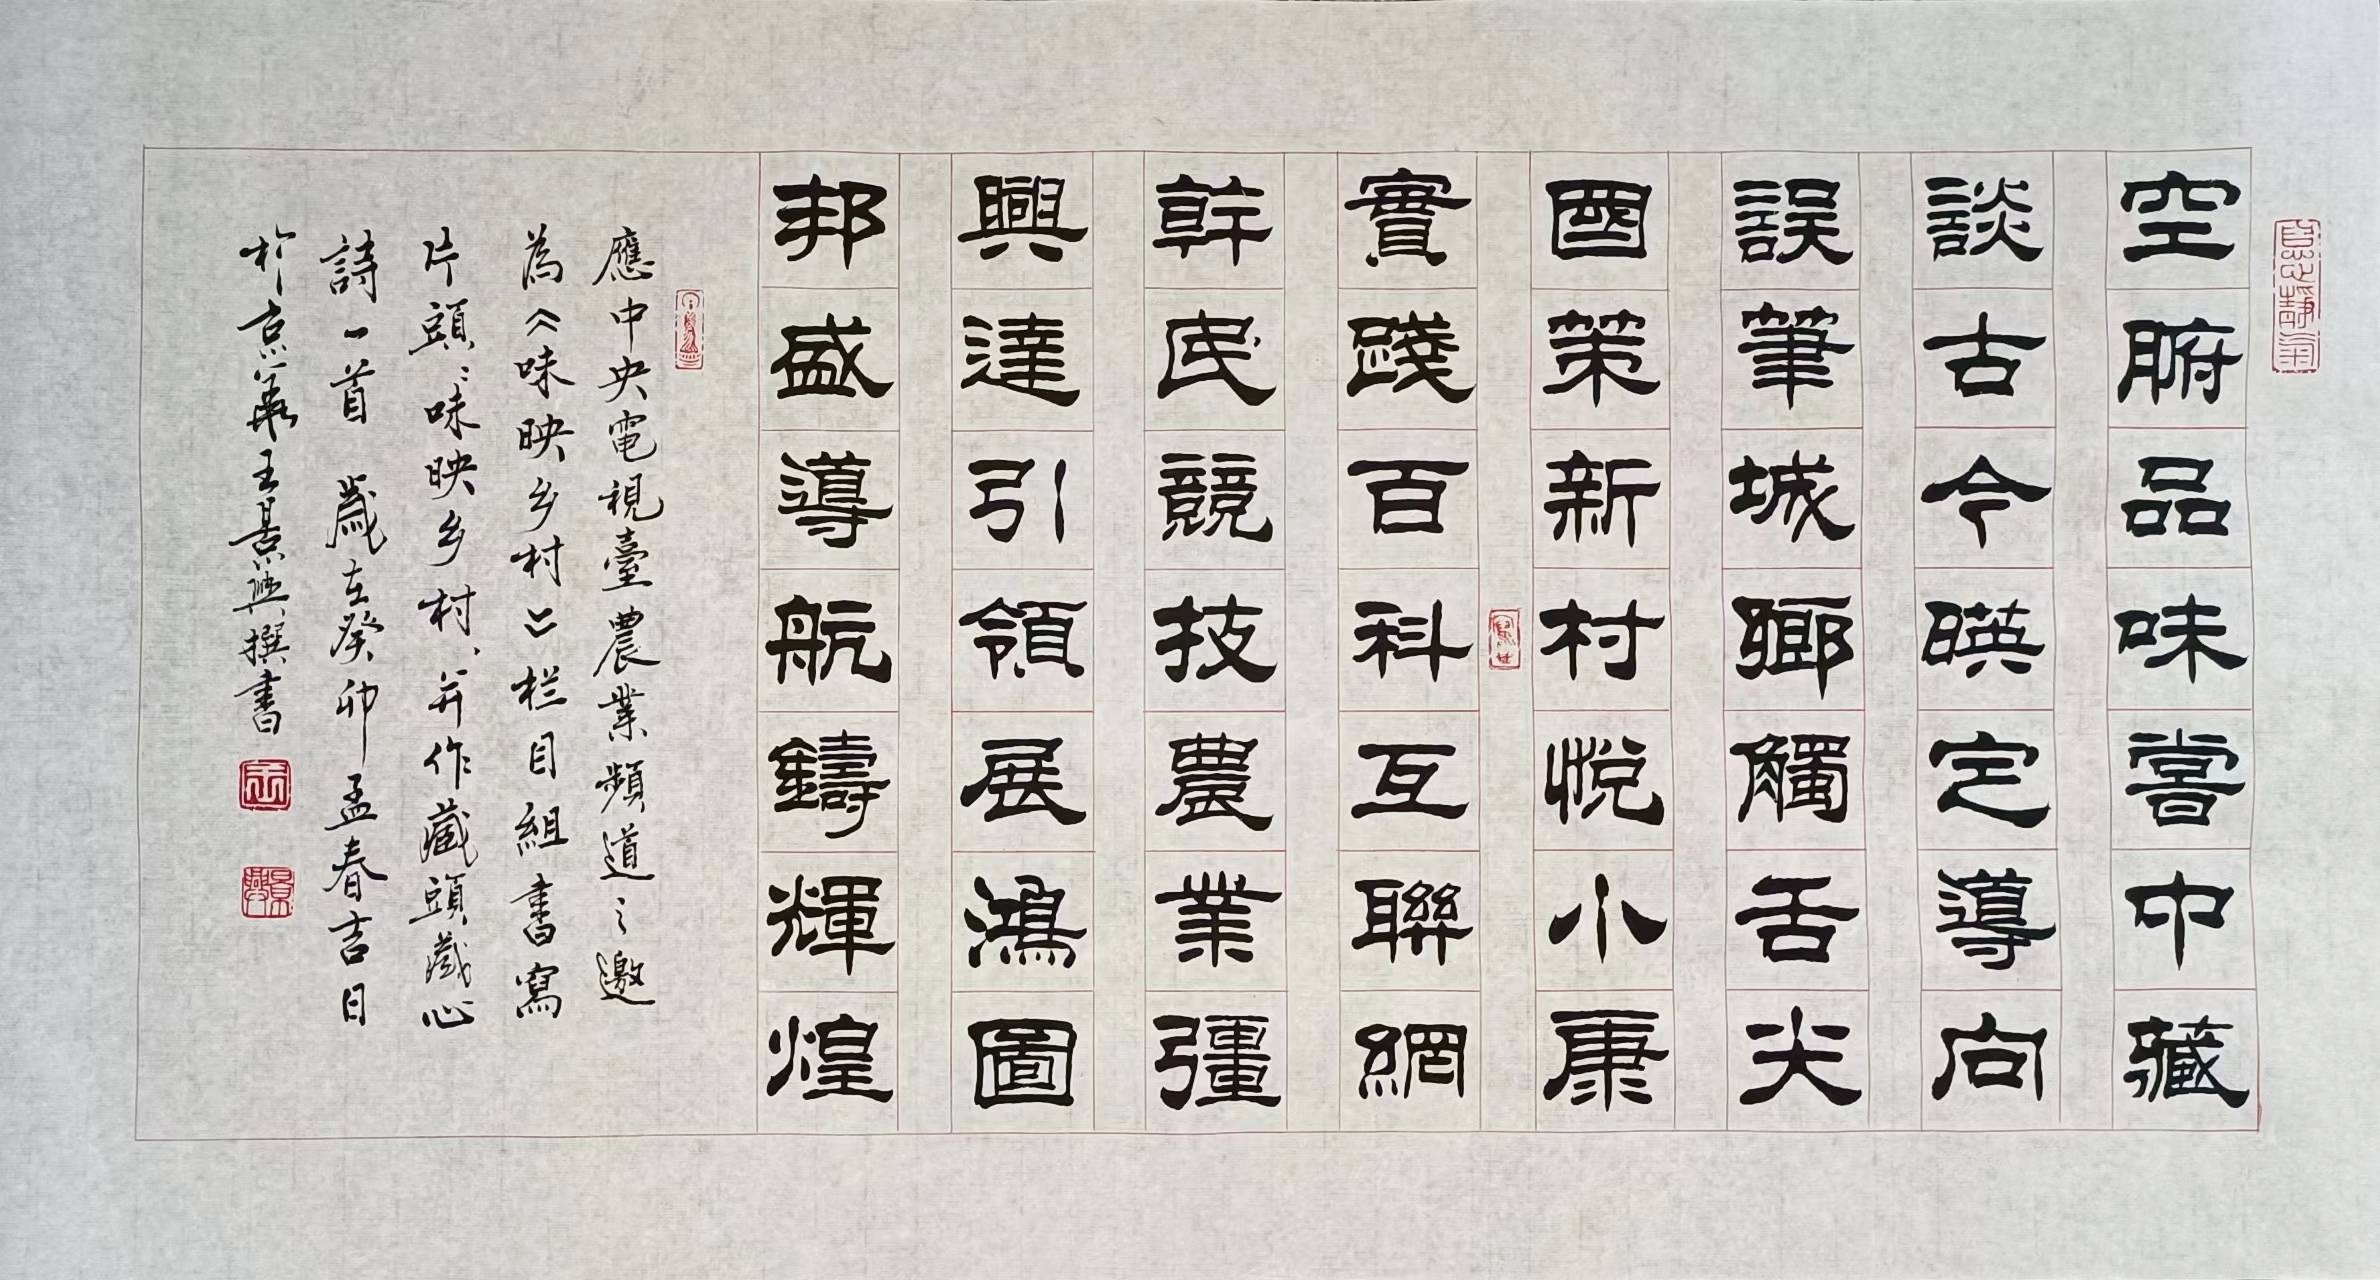 空腑品味嘗中藏
談古今暎定導向
誤筆城鄉觸舌尖
國策新村悦小康
實踐百科互聯網
幹民競技農業彊
興達引領展鴻圖
邦盛導航鑄輝煌
應中央電視臺農業頻道之邀
為《味映乡村》栏目組書寫
片頭：味映乡村，并作藏頭藏心
詩一首 歲在癸卯孟春吉日
於京華王景興撰書
景興